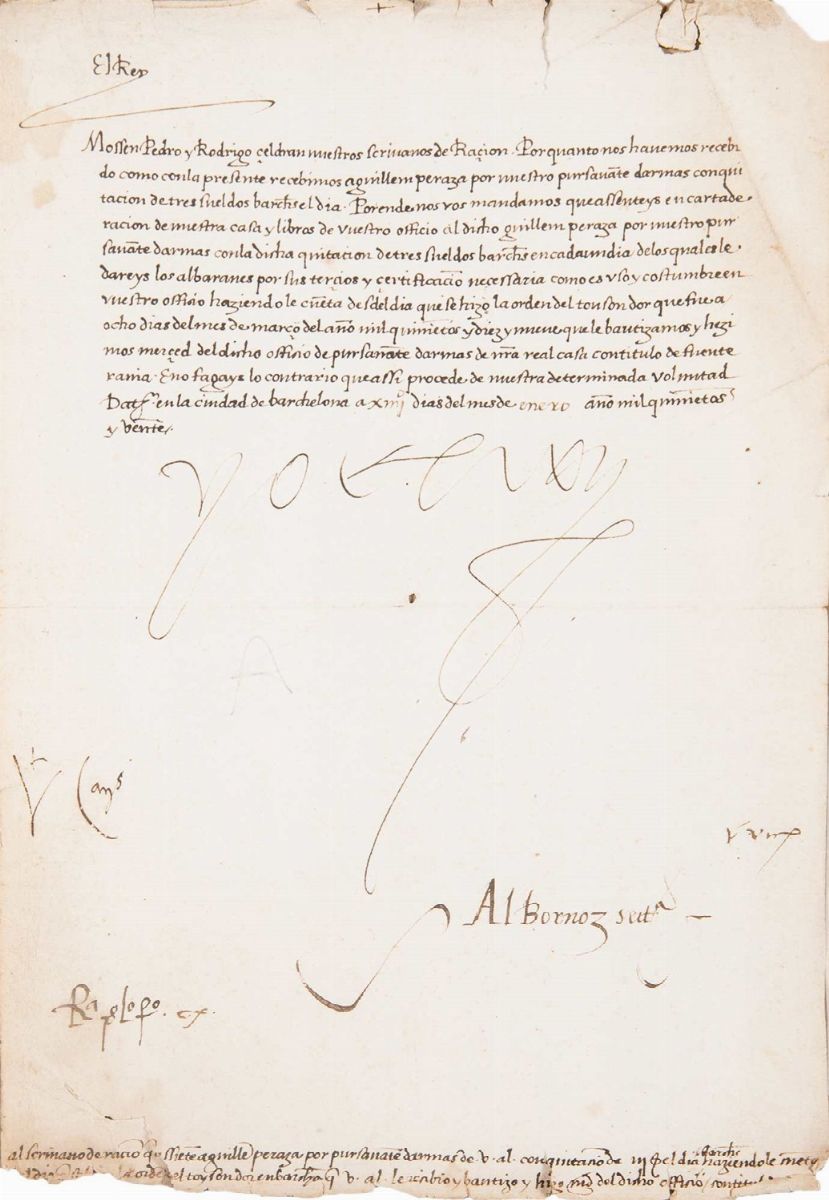 El Rey
Mossen Pedro y Rodrigo çeldran nuestros scrivanos de Raçion. Por quanto nos havemos recebi
do como con la presente recebimos a guillem peraza por nuestro pursavāte darmas con qui
tacion de tres sueldos barch̃s el dia. Porende nos vos mandamos que assenteys en carta de
racion de nuestra casa y libros de vuestro officio al dicho guillem peraza por nuestro pur
savāte darmas con la dicha quitacion de tres sueldos barch̃s en cada un dia de los quales le
dareys los albaranes por sus terçios y çertificaciō necessaria como es uso y costumbre en
vuestro officio haziendo le cuēta desdel dia que se hizo la orden del touson dor que fue a
ocho dias del mes de março del año mil quiniētos y diez y nueve que le bautizamos y hezi
mos merçed del dicho officio de pursavāte darmas de nr̃a real casa con titulo de fuente
rauia. E no fagays lo contrario que assi procede de nuestra determinada voluntad
Dat̃. en la ciudad de barchelona a xiiijº dias del mes de enero año mil quiniētos
y veinte.
yo el Rey
A
Albornoz secrª
al scrivano de raciō q̄ assiēte a guillē peraza por pursavāte darmas de v. al. con quitaciō de iij ſ el dia barch̃s haziendo le cuēta
orden del toyson dor en barch̃a q̄ v. al. le recibio y bautizo y hizo m̃d del dicho officio con titu